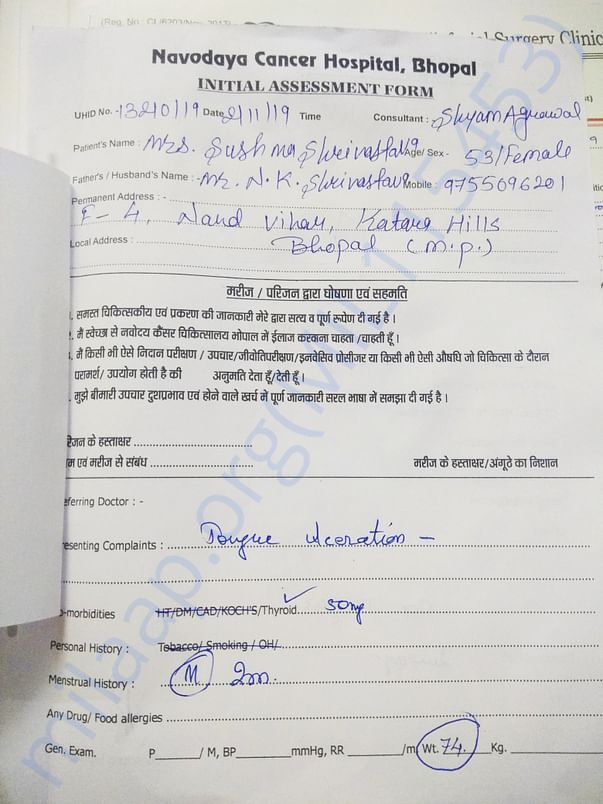 (Reg. No. CL/6203/Nov. 2017)
Surgery Clinic
Navodaya Cancer Hospital, Bhopal
INITIAL ASSESSMENT FORM
UHID No. - 13240/19 Date 2/11/19 Time Consultant : Shyam Agrawal
Patient's Name : Mrs. Sushma Shrivastava Age/ Sex - 53/Female
Father's / Husband's Name : - Mr. N.K. Shrivastava Mobile : 9755696201
Permanent Address : -
F-4, Nand Vihar, Katara Hills
Local Address : Bhopal (M.P.)
मरीज / परिजन द्वारा घोषणा एवं सहमति
. समस्त चिकित्सकीय एवं प्रकरण की जानकारी मेरे द्वारा सत्य व पूर्ण रूपेण दी गई है ।
. मैं स्वेच्छा से नवोदय कैंसर चिकित्सालय भोपाल में ईलाज करवाना चाहता /चाहती हूँ ।
. मैं किसी भी ऐसे निदान परीक्षण / उपचार/जीवोतिपरीक्षण/इनवेसिव प्रोसीजर या किसी भी ऐसी औषधि जो चिकित्सा के दौरान
परामर्श/ उपयोग होती है की अनुमति देता हूँ/देती हूँ ।
. मुझे बीमारी उपचार दुशप्रभाव एवं होने वाले खर्च में पूर्ण जानकारी सरल भाषा में समझा दी गई है ।
रिजन के हस्ताक्षर
म एवं मरीज से संबंध मरीज के हस्ताक्षर/अंगूठे का निशान
eferring Doctor : -
esenting Complaints : Tongue ulceration -
-morbidities HT/DM/CAD/KOCH'S/Thyroid ✓ 50mg
Personal History : Tobacco/ Smoking / OH/
Menstrual History : M 2m.
Any Drug/ Food allergies
Gen. Exam. P / M, BP mmHg, RR /m Wt. 74. Kg.
milaap.org(MIL_115453)